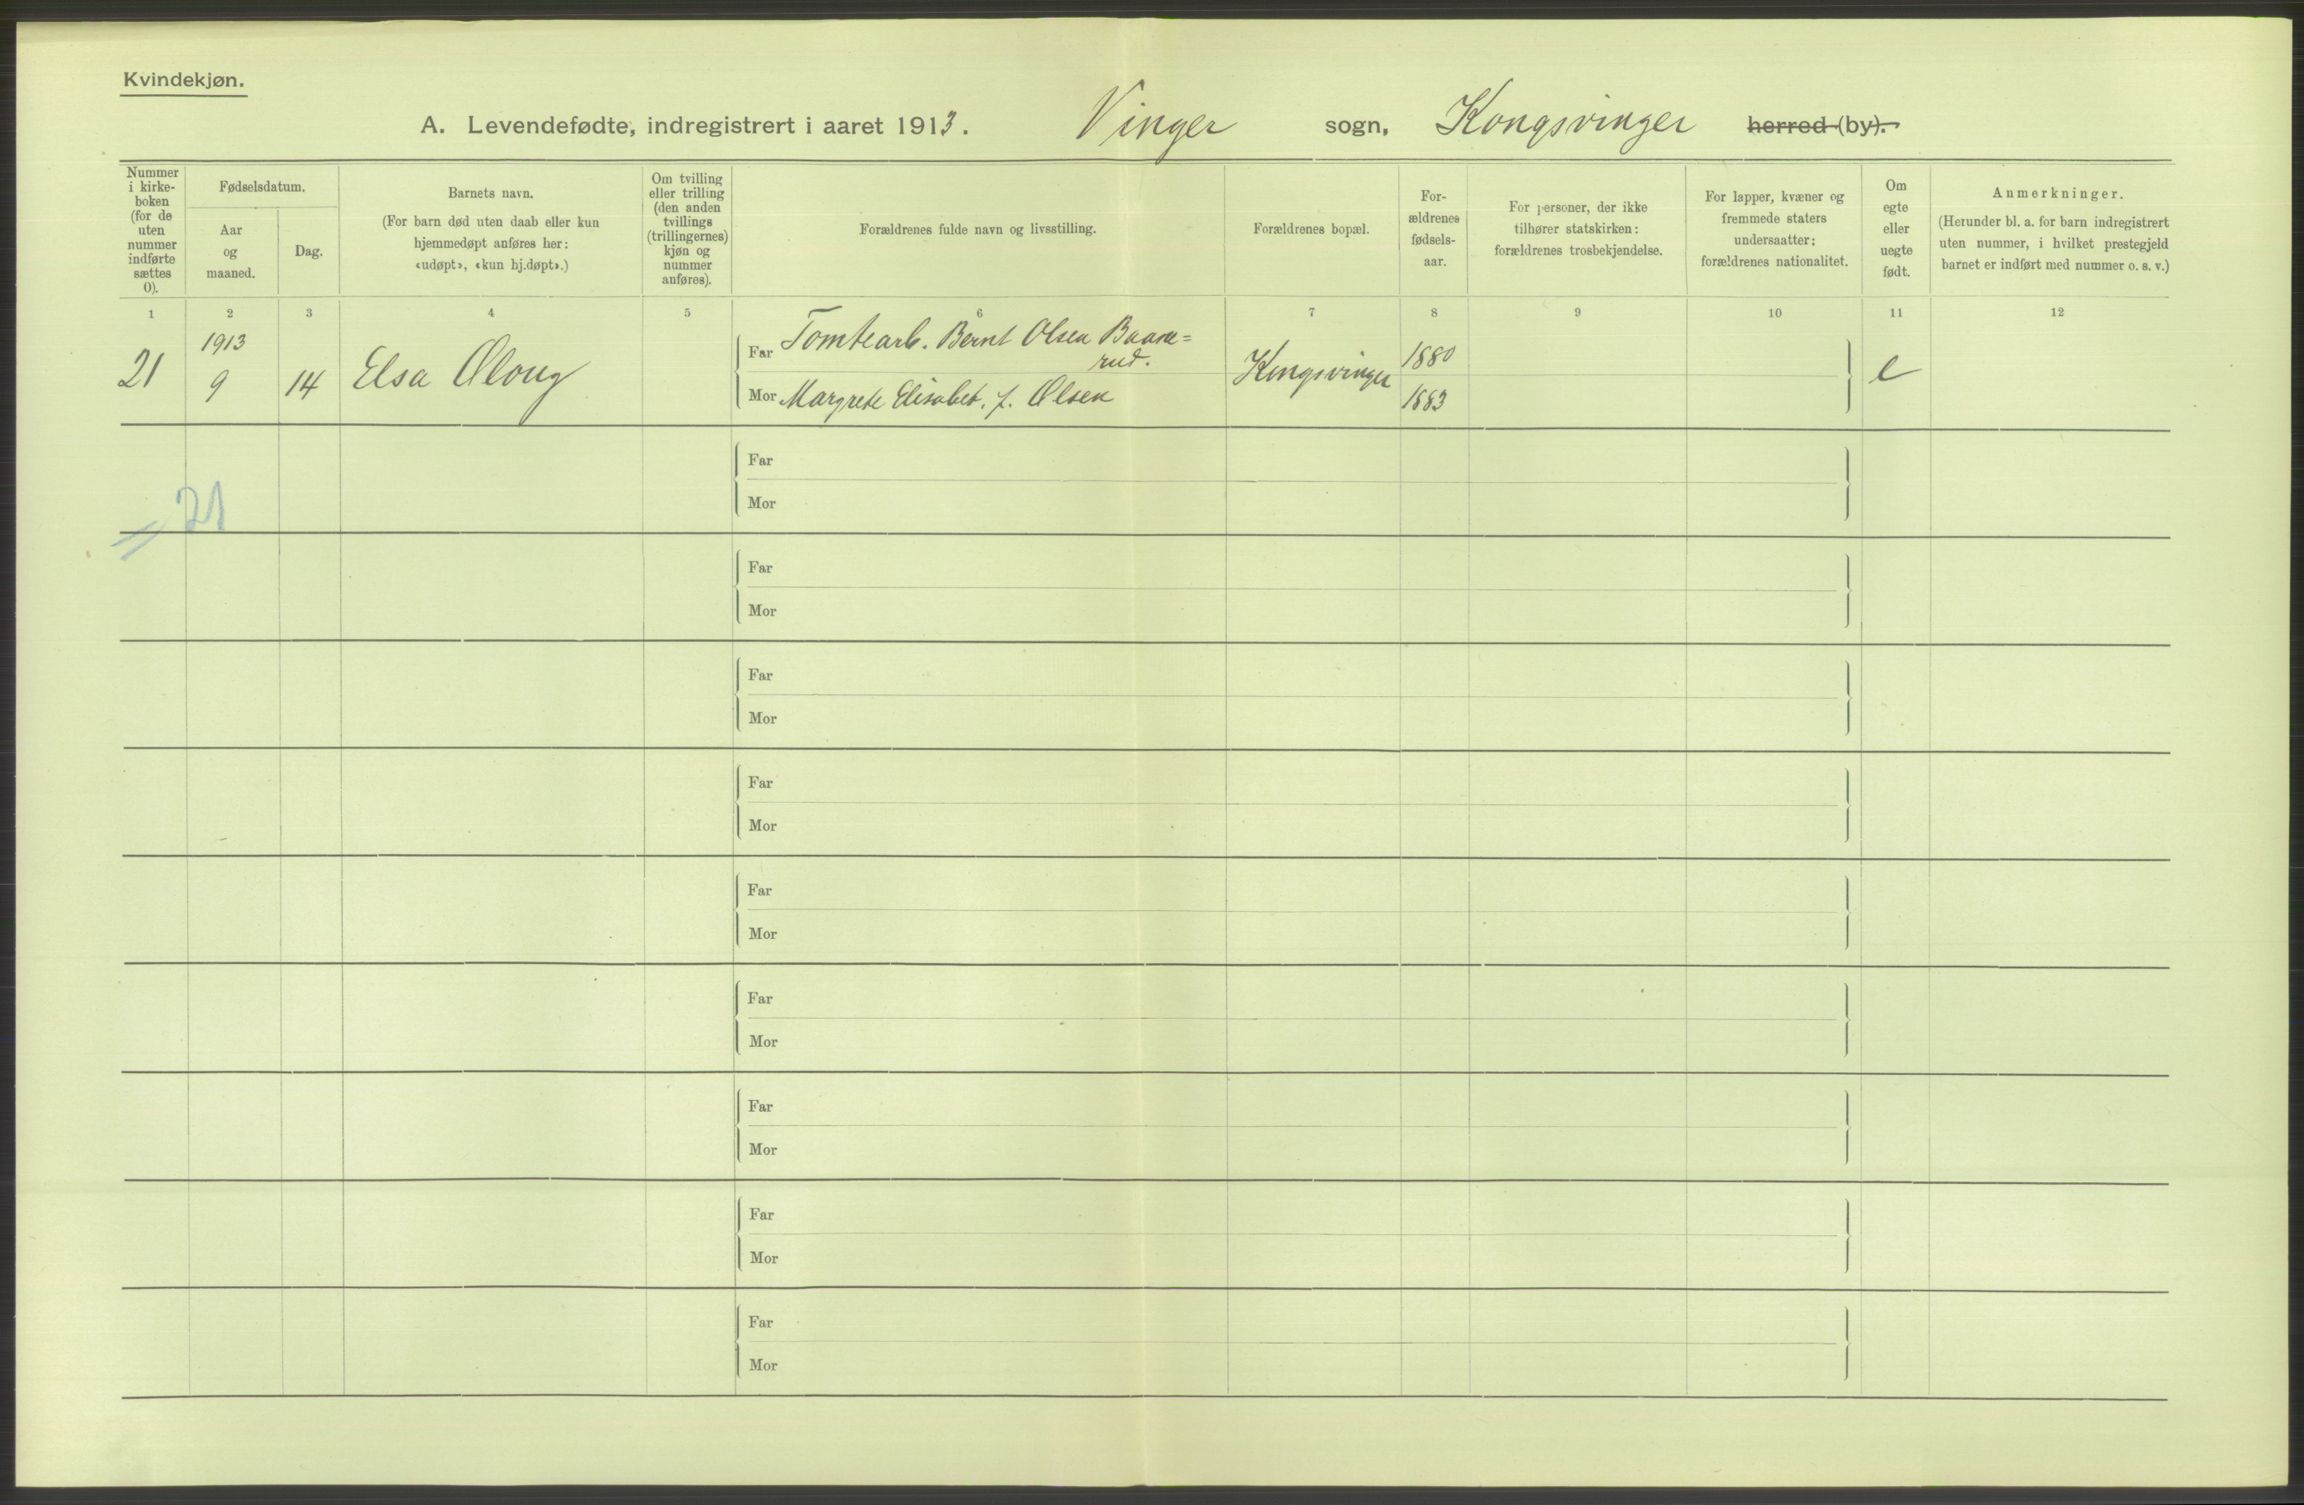 Kvindekjøn.
A. Levendefødte, indregistrert i aaret 1913. Vinger sogn, Kongsvinger herred (by).
Nummer i kirke- boken (for de uten nummer indførte sættes 0).
Fødselsdatum.
Aar og maaned.
Dag.
Barnets navn.
(For barn død uten daab eller kun
hjemmedøpt anføres her:
«udøpt», «kun hj.døpt».)
Om tvilling
eller trilling
(den anden
tvillings
(trillingernes)
kjøn og
nummer
anføres).
Forældrenes fulde navn og livsstilling.
Forældrenes bopæl.
For-
ældrenes
fødsels-
aar.
For personer, der ikke
tilhører statskirken:
forældrenes trosbekjendelse.
For lapper, kvæner og
fremmede staters
undersaatter:
forældrenes nationalitet.
Om
egte
eller
uegte
født.
Anmerkninger.
(Herunder bl. a. for barn indregistrert
uten nummer, i hvilket prestegjeld
barnet er indført med nummer o. s. v.)
1 2 3 4 5 6 7 8 9 10 11 12
1913
21 9 14 Elsa Oloug
Far Tomtearb. Bernt Olsen
rud.
Mor Margrete Elisabet, f. Olsen
Kongsvinger
1880
1883
e
21
Far
Mor
Far
Mor
Far
Mor
Far
Mor
Far
Mor
Far
Mor
Far
Mor
Far
Mor
Far
Mor